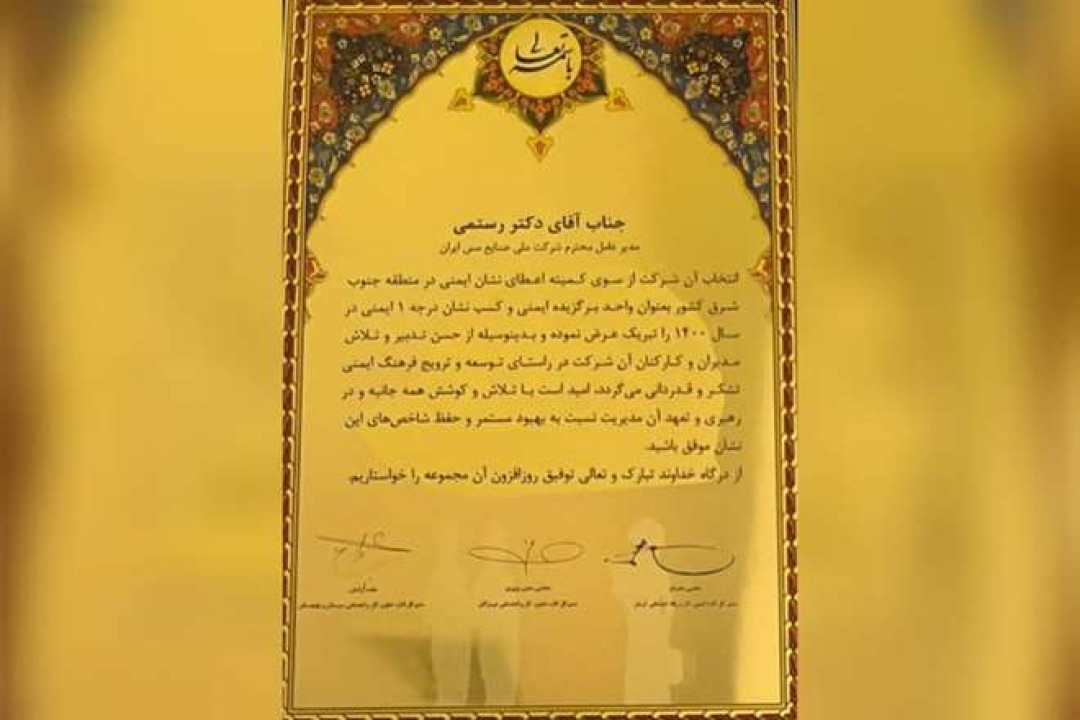 باسمه تعالی
جناب آقای دکتر رستمی
مدیر عامل محترم شرکت ملی صنایع مس ایران
انتخاب آن شرکت از سوی کمیته اعطای نشان ایمنی در منطقه جنوب
شرق کشور بعنوان واحد برگزیده ایمنی و کسب نشان درجه ۱ ایمنی در
سال ۱۴۰۰ را تبریک عرض نموده و بدینوسیله از حسن تدبیر و تلاش
مدیران و کارکنان آن شرکت در راستای توسعه و ترویج فرهنگ ایمنی
تشکر و قدردانی می‌گردد. امید است با تلاش و کوشش همه جانبه و در
رهبری و تعهد آن مدیریت نسبت به بهبود مستمر و حفظ شاخص‌های این
نشان موفق باشید.
از درگاه خداوند تبارک و تعالی توفیق روزافزون آن مجموعه را خواستاریم.